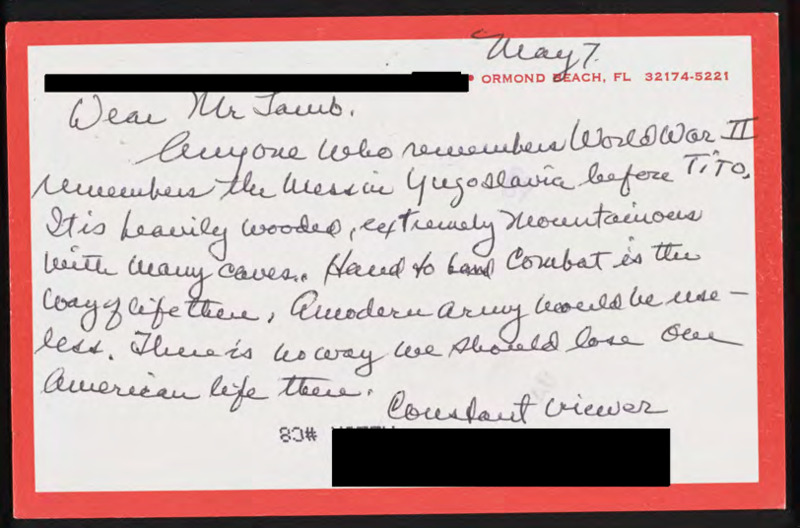 May 7.
ORMOND BEACH, FL 32174-5221
Dear Mr Lamb.
Anyone who remembers World War II
remembers the mess in Yugoslavia before TiTO.
It is heavily wooded, extremely mountainous
with many caves. Hand to hand Combat is the
way of life there, A modern army would be use-
less. There is no way we should lose one
American life there.
Constant viewer
83#